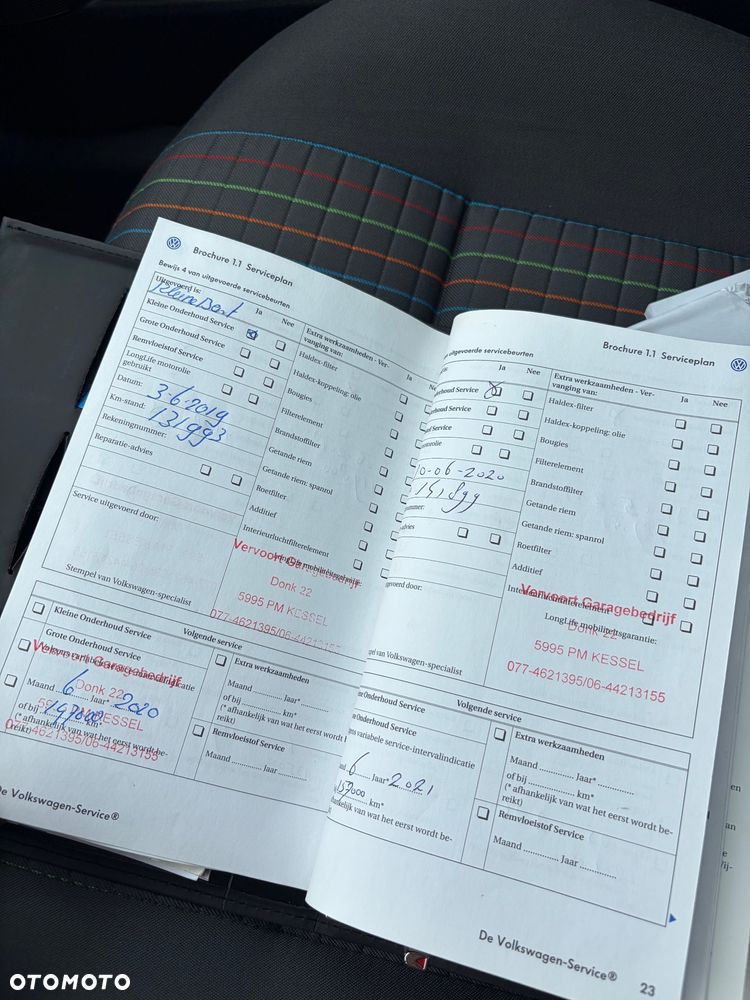 Brochure 1.1 Serviceplan
Bewijs 4 van uitgevoerde servicebeurten
Uitgevoerd is:
Ja Nee
Kleine Onderhoud Service
Grote Onderhoud Service
Remvloeistof Service
LongLife motorolie
gebruikt
Datum: 3.6.2019
Km-stand: 131993
Rekeningnummer:
Reparatie-advies
Service uitgevoerd door:
Stempel van Volkswagen-specialist
Extra werkzaamheden - Ver-
vanging van:
Haldex-filter
Haldex-koppeling: olie
Bougies
Filterelement
Brandstoffilter
Getande riem
Getande riem: spanrol
Roetfilter
Additief
Interieurluchtfilterelement
Vervoort Garagebedrijf
Donk 22
5995 PM KESSEL
077-4621395/06-44213155
Volgende service
Kleine Onderhoud Service
Grote Onderhoud Service
Vervoort Garagebedrijf
Donk 22
KESSEL
Maand 6 Jaar* 2020
of bij km*
(* afhankelijk van wat het eerst wordt be-
reikt)
Extra werkzaamheden
Maand ............ Jaar* ............
of bij .................. km*
(* afhankelijk van wat het eerst wordt be-
reikt)
Remvloeistof Service
Maand ............ Jaar ............
De Volkswagen-Service®
Brochure 1.1 Serviceplan
uitgevoerde servicebeurten
Ja Nee
derhoud Service
derhoud Service
Service
10-06-2020
Stempel van Volkswagen-specialist
Extra werkzaamheden - Ver-
vanging van:
Ja Nee
Haldex-filter
Haldex-koppeling: olie
Bougies
Filterelement
Brandstoffilter
Getande riem
Getande riem: spanrol
Roetfilter
Additief
Interieurluchtfilterelement
LongLife mobiliteitsgarantie:
Vervoort Garagebedrijf
Donk 22
5995 PM KESSEL
077-4621395/06-44213155
Volgende service
Onderhoud Service
Onderhoud Service
variabele service-intervalindicatie
6 Jaar* 2021
157000 km*
afhankelijk van wat het eerst wordt be-
Extra werkzaamheden
Maand ............ Jaar* ............
of bij .................. km*
(* afhankelijk van wat het eerst wordt be-
reikt)
Remvloeistof Service
Maand ............ Jaar ............
De Volkswagen-Service®
23
OTOMOTO